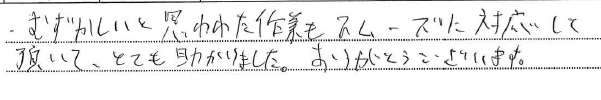 ・むずかしいと思われた作業もスムーズに対応して
頂いて、とても助かりました。ありがとうございます。